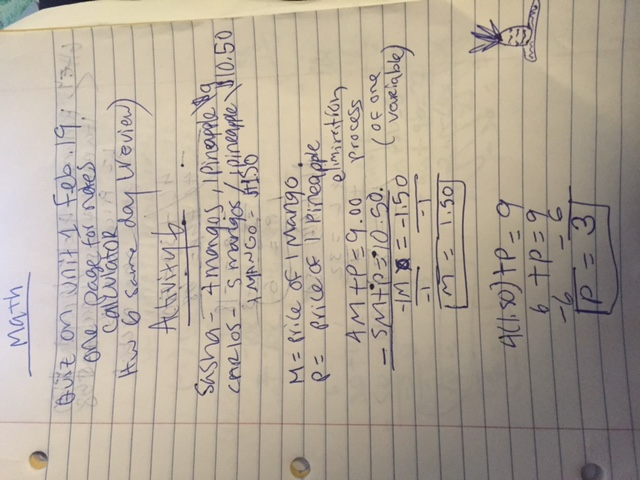 Math
Quiz on Unit 1 Feb. 19
one page for notes
calculator
HW 6 same day (Review)
Activity 6
Sasha - 4 mangos, 1 pineapple $9
Carlos - 5 mangos / 1 pineapple $10.50
1 MANGO = $1.50
M = Price of 1 Mango
P = Price of 1 Pineapple
4M + P = 9.00
- 5M + P = 10.50
elimination process (of one variable)
-1M = -1.50
-1 -1
M = 1.50
4(1.50) + P = 9
6 + P = 9
-6 -6
P = 3